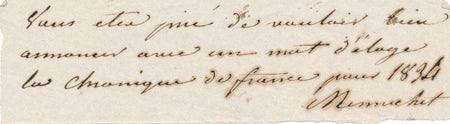 Vous etes prié de vouloir bien
annoncer avec un mot d'éloge
la chronique de france pour 1834
Mennechet